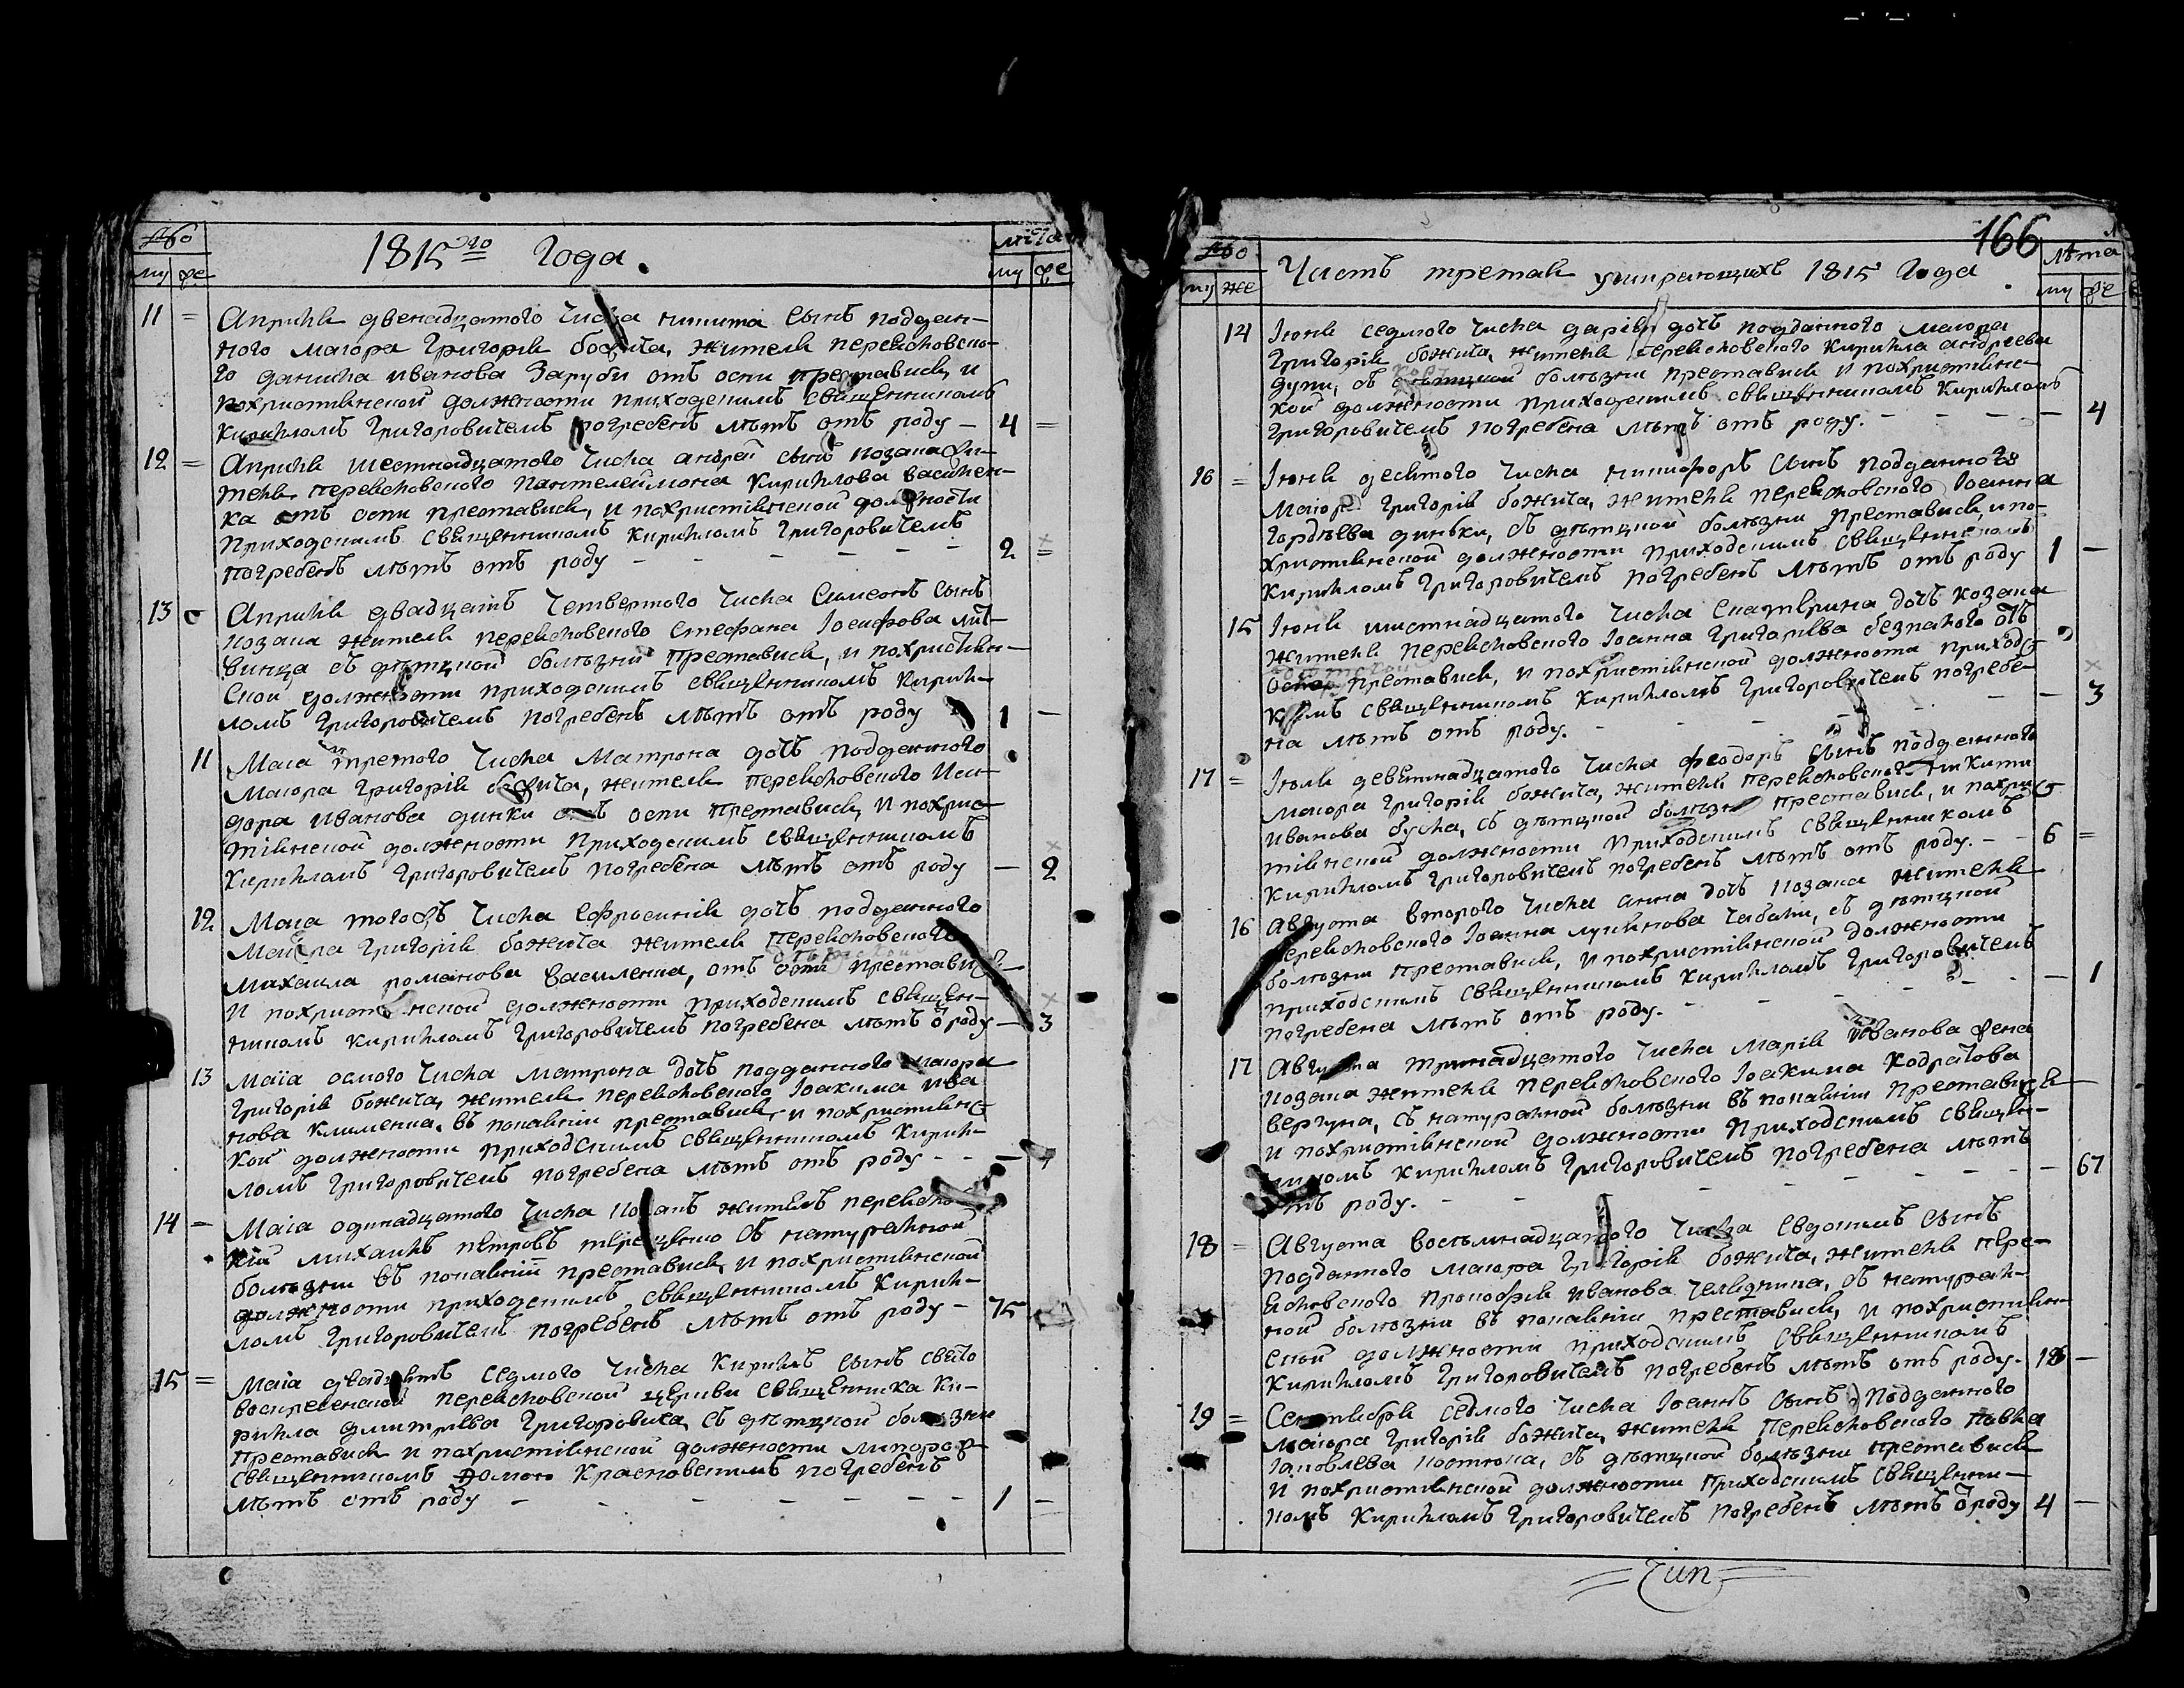 1815го года.
лѣта
му фе му фе
11 = Априля двенадцатого числа никита сынъ поддан-
ного маіора Григорія божича, жителя перевяловско-
го данила иванова Зарубы отъ оспи преставися, и
похристіянской должности приходскимъ священникомъ
Кирилломъ Григоровичемъ погребенъ лѣтъ отъ роду – 4 =
12 = Априля шестнадцатого числа андрей сынъ козака жи-
теля Пантелеймона Кирилова василен-
ка отъ оспи преставися, и похристіянской должности
Приходскимъ священникомъ Кирилломъ Григоровичемъ
погребенъ лѣтъ отъ роду – – – – 2 =
13 Априля двадцать четвертого числа Симеонъ сынъ
козака жителя Стефана Іосифова лит-
винца съ дѣтцкой болѣзни преставися, и похристіян-
ской должности приходскимъ священникомъ Кирил-
ломъ Григоровичемъ погребенъ лѣтъ отъ роду 1 –
11 Маіа третого числа Матрона дочь подданного
Маіора Григорія божича, жителя Иси-
дора иванова динки отъ оспи преставися, и похрис-
тіянской должности приходскимъ священникомъ
Кирилломъ Григоровичемъ погребена лѣтъ отъ роду – 2
12 Маіа тогожъ числа Ефросинія дочь подданного
Маіора Григорія божича жителя
михаила романова василенка, отъ оспи преставися
И похристіянской должности приходскимъ священ-
никомъ Кирилломъ Григоровичемъ погребена лѣтъ ѿ роду – 3
13 Маіа осмого числа матрона дочь подданного маіора
Григорія божича, жителя Іоакима ива-
нова клименка, въ покаяніи преставися, и похристіянс-
кой должности приходскимъ священникомъ Кирил-
ломъ Григоровичемъ погребена лѣтъ отъ роду – – –
14 = Маіа одинадцатого числа козакъ житель
михаилъ петровъ терещенко съ натуралной
болѣзни въ покаяніи преставися, и похристіянской
должности приходскимъ священникомъ Кирил-
ломъ Григоровичемъ погребенъ лѣтъ отъ роду – 75
15 = Маіа двадцять седмого числа Кирилъ сынъ свято
воскресенской церкви священника Ки-
рилла димитріева Григоровича, съ дѣтцкой болѣзни
преставися и похристіянской должности
священникомъ Красковскимъ погребенъ
лѣтъ отъ роду – – – – – – – 1 –
166
Часть третая умирающихъ 1815 года.
лѣта
му же му фе
14 Іюня седмого числа дарія дочь подданного маіора
Григорія божича, жителя Кирилла андреева
дупи, съ болѣзни преставися и похристіянс-
кой должности приходскимъ священникомъ Кирилломъ
Григоровичемъ погребена лѣтъ отъ роду. – – – – 4
16 = Іюня десятого числа никифоръ сынъ подданного
маіора Григорія божича, жителя Іоанна
Гордѣева динки, съ дѣтцкой болѣзни преставися, и по-
христіянской должности приходскимъ священникомъ
Кирилломъ Григоровичемъ погребенъ лѣтъ отъ роду 1 –
15 Іюня шистнадцатого числа Екатерина дочь козака
жителя Іоанна Григоріева безпалого отъ
преставися, и похристіянской должности приходс-
кимъ священникомъ Кирилломъ Григоровичемъ погребе-
на лѣтъ отъ роду. – – – – – 3
17 = Іюля девятнадцатого числа феодоръ сынъ подданного
маіора Григорія божича, жителя никити
иванова буска, съ дѣтцкой болѣзни преставися, и похрис-
тіянской должности приходскимъ священникомъ
Кирилломъ Григоровичемъ погребенъ лѣтъ отъ роду. – – 6 =
16 Августа второго числа анна дочь козака жителя
Іоанна лукянова чабана, съ дѣтцкой
болѣзни преставися, и похристіянской должности
приходскимъ священникомъ Кирилломъ Григоровичемъ
погребена лѣтъ отъ роду. – – – – – – 1
17 Августа тринадцатого числа Марія иванова жена
козака жителя Іоакима Кодратова
вергуна, съ натуралной болѣзни въ покаяніи преставися
и похристіянской должности приходскимъ священ-
никомъ Кирилломъ Григоровичемъ погребена лѣтъ
отъ роду. – – – – – – – 67
18 = Августа восемьнадцатого числа Евдокимъ сынъ
подданного маіора Григорія божича, жителя пере-
Прокофія иванова с натурал-
ной болѣзни въ покаяніи преставися, и похристіян-
ской должности приходскимъ священникомъ
Кирилломъ Григоровичемъ погребенъ лѣтъ отъ роду. 18 –
19 = Сентября седмого числа Іоаннъ сынъ подданного
маіора Григорія божича, жителя павла
Іаковлева костюка, съ дѣтцкой болѣзни преставися
и похристіянской должности приходскимъ священни-
комъ Кирилломъ Григоровичемъ погребенъ лѣтъ ѿ роду 4 –